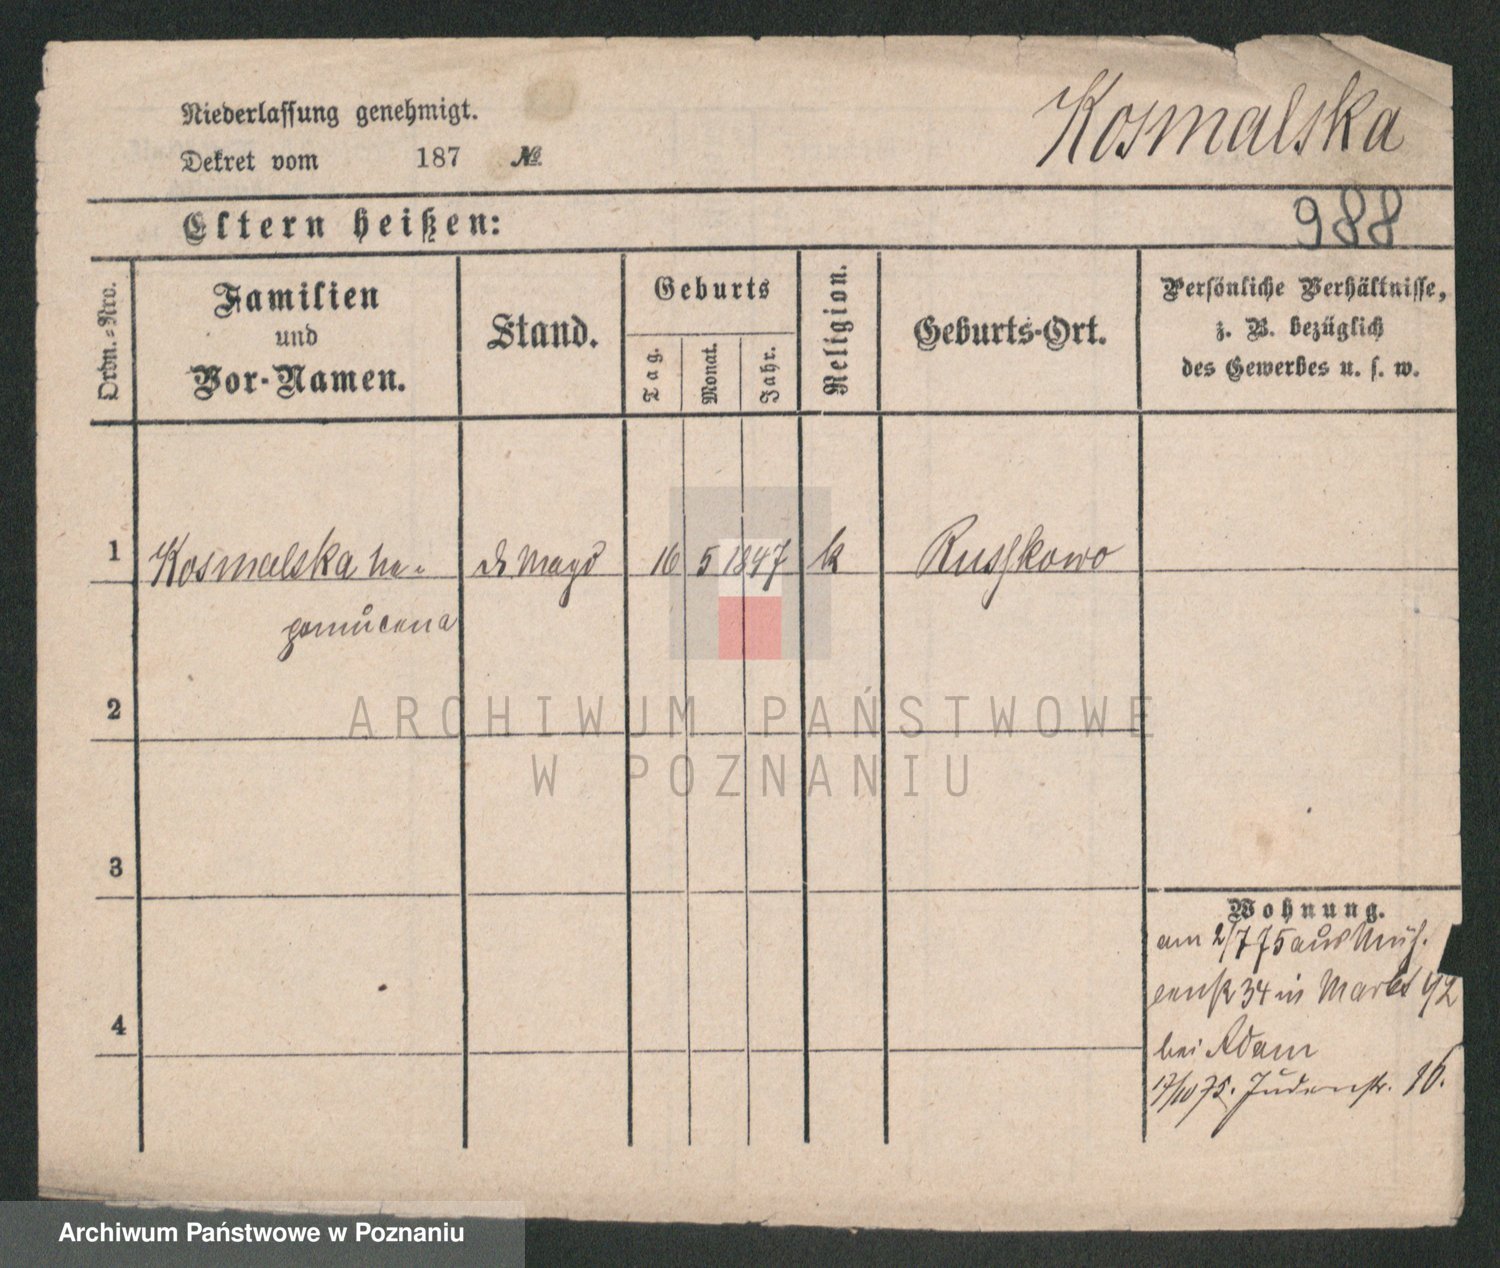 Niederlassung genehmigt.
Kosmalska
Dekret vom 187 №
Eltern heißen:
988
Ordn.-Nro.
Familien
und
Vor-Namen.
Stand.
Geburts
Tag.
Monat.
Jahr.
Religion.
Geburts-Ort.
Persönliche Verhältnisse,
z. B. bezüglich
des Gewerbes u. s. w.
1 Kosmalska Ne- Magd 16 5 1847 k Russkowo
pomucena
2
3
4
Wohnung.
am 2/7 75 aus
34 in Markt 42
bei Adam
17/10 75. Judenstr. 16.
ARCHIWUM PAŃSTWOWE
W POZNANIU
Archiwum Państwowe w Poznaniu